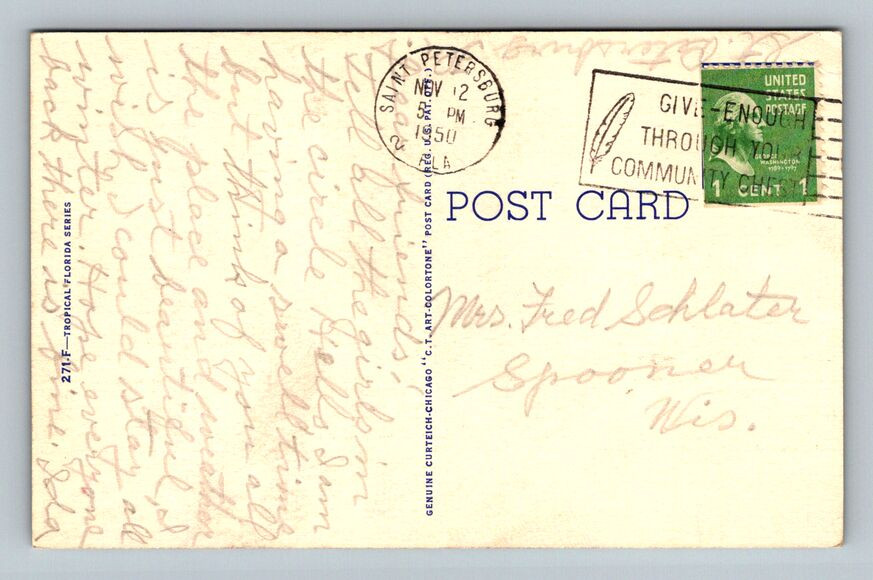 St. Petersburg
Dear Friends;
Tell all the girls in
the circle Hello I am
having a swell time
but think of you all
the place and weather
is just beautiful, I
wish I could stay all
winter. Hope everyone
back there is fine. Lola
SAINT PETERSBURG
NOV 12
5 PM
1950
2 FLA.
GIVE-ENOUGH
THROUGH YOUR
COMMUNITY CHEST
UNITED
STATES
POSTAGE
GEORGE
WASHINGTON
1789-1797
1 CENT 1
POST CARD
Mrs. Fred Schlater
Spooner
Wis.
GENUINE CURTEICH-CHICAGO "C.T. ART-COLORTONE" POST CARD (REG. U.S. PAT. OFF.)
271-F—TROPICAL FLORIDA SERIES